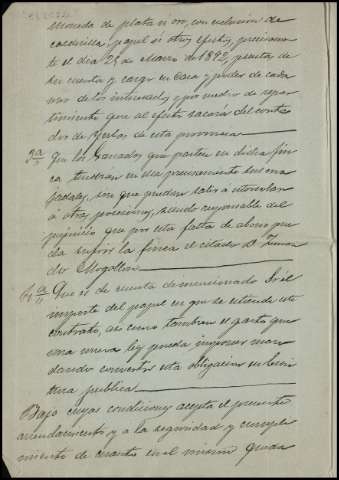 moneda de plata ú oro, con exclusion de
calderilla, papel ú otros efectos, precisamen
te el dia 25 de Marzo de 1892, puesta de
su cuenta y cargo en casa y poder de cada
uno de los interesados y por medio de repar
timiento que al efecto sacará del conta
dor de yerbas de esta provincia
5ª Que los ganados que pasten en dicha fin
ca tendrán en ella precisamente sus ma
jadales, sin que puedan salir á
á otras posesiones, siendo responsable del
perjuicio que por esta falta de abono pue
da sufrir la finca el citado D.
do Mogollon
6ª Que es de cuenta del mencionado Sr. el
importe del papel en que se estiende este
contrato, asi como tambien el gasto que
una nueva ley pueda imponer man
dando convertir esta obligacion en Escri
tura publica
Bajo cuyas condiciones acepta el presente
arrendamiento y a la seguridad y cumpli
miento de cuanto en el mismo queda